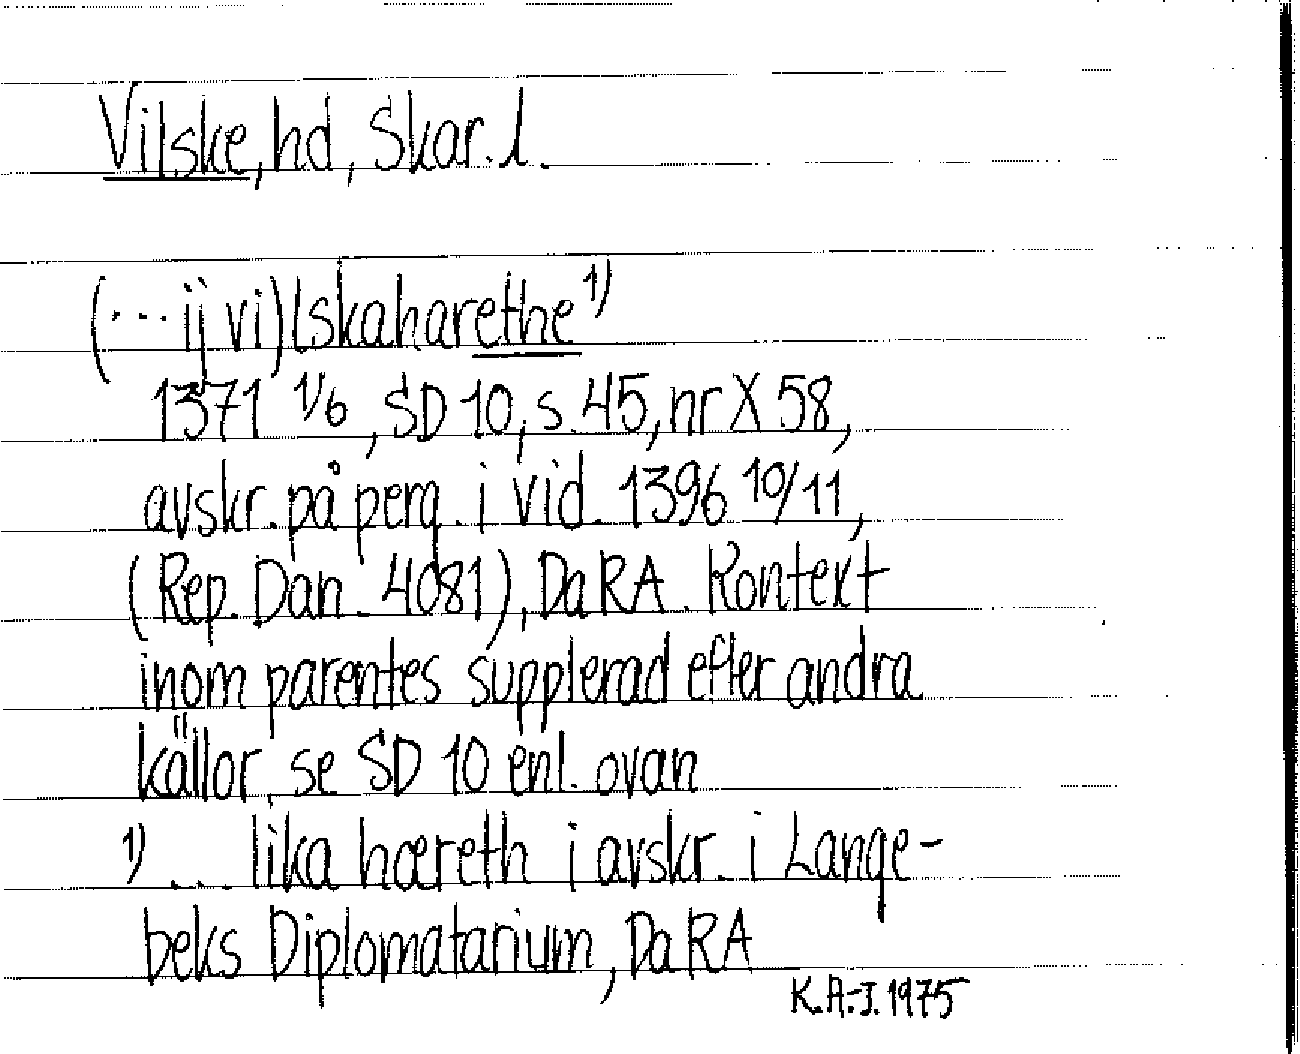 Vilske, hd, Skar. l.
(... ij vi)lskaharethe 1)
1371 1/6, SD 10, s. 45, nr X 58,
avskr. på perg. i vid. 1396 10/11,
(Rep. Dan. 4081), DaRA. Kontext
inom parentes supplerad efter andra
källor, se SD 10 enl. ovan
1) ... lika hæreth i avskr. i Lange-
beks Diplomatarium, DaRA
K.A.-J. 1975